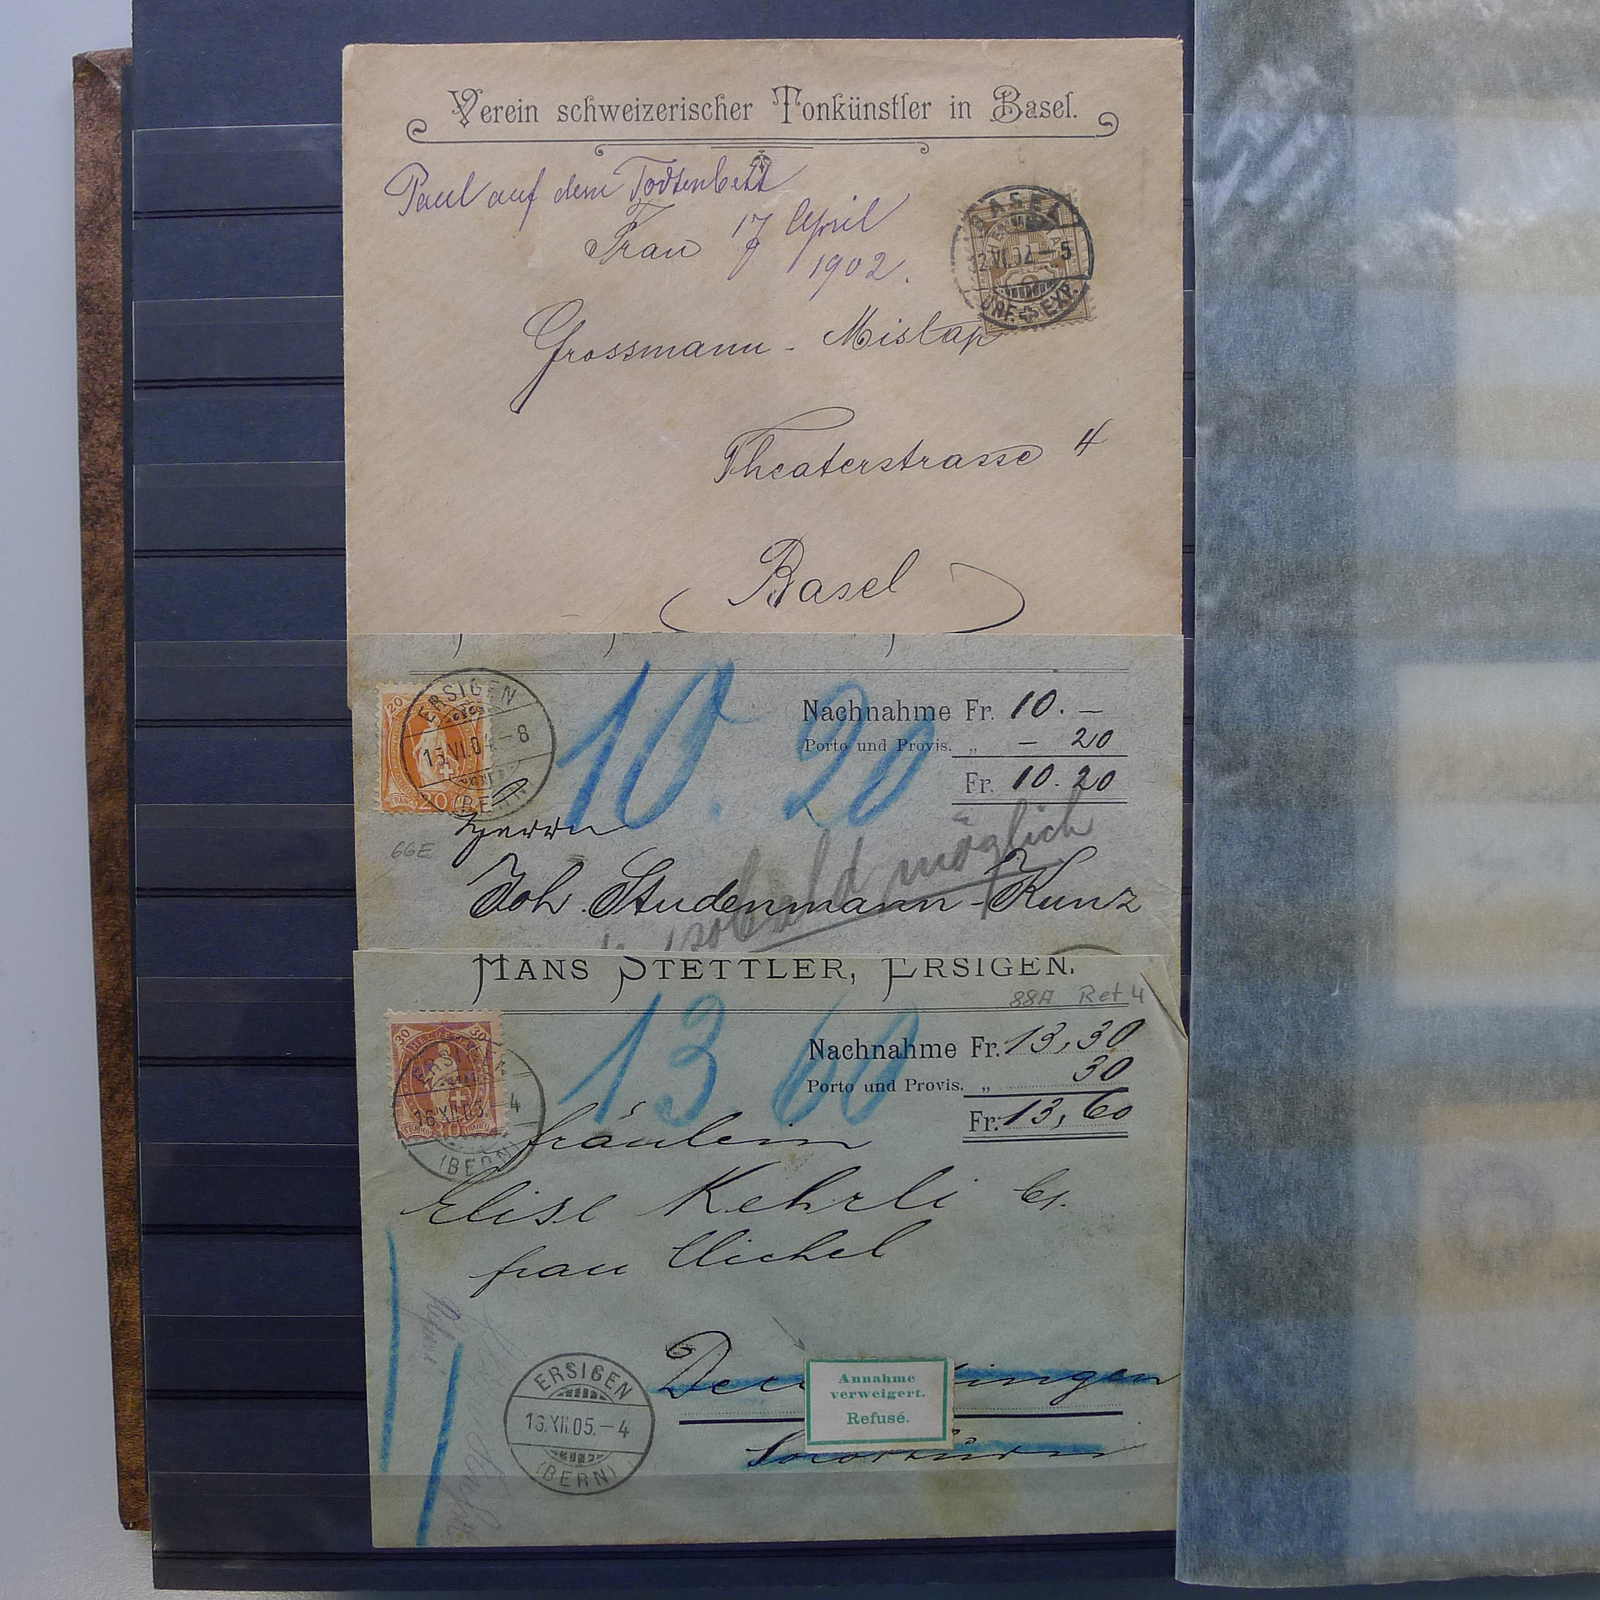 Verein schweizerischer Tonkünstler in Basel.
Paul auf dem Todtenbett
17 April
1902.
Frau
BASEL
12.VI.02-5
BRF.EXP.
Grossmann - Mislap
Theaterstrasse 4
Basel
20
ERSIGEN
15.VI.04-8
(BERN)
20
10.20
Nachnahme Fr. 10.-
Porto und Provis. „ - 20
Fr. 10.20
66E
Herrn
sobald möglich
Joh. Studenmann-Kunz
HANS STETTLER, ERSIGEN.
88A Ret 4
30 30
13 60
16.XII.05.-4
(BERN)
30
Nachnahme Fr. 13,30
Porto und Provis. „ 30
Fr. 13,60
Fräulein
Elise Kehrli bs.
frau Michel
Refusé
ingen
Annahme
verweigert.
Refusé.
ERSIGEN
16.XII.05.-4
(BERN)